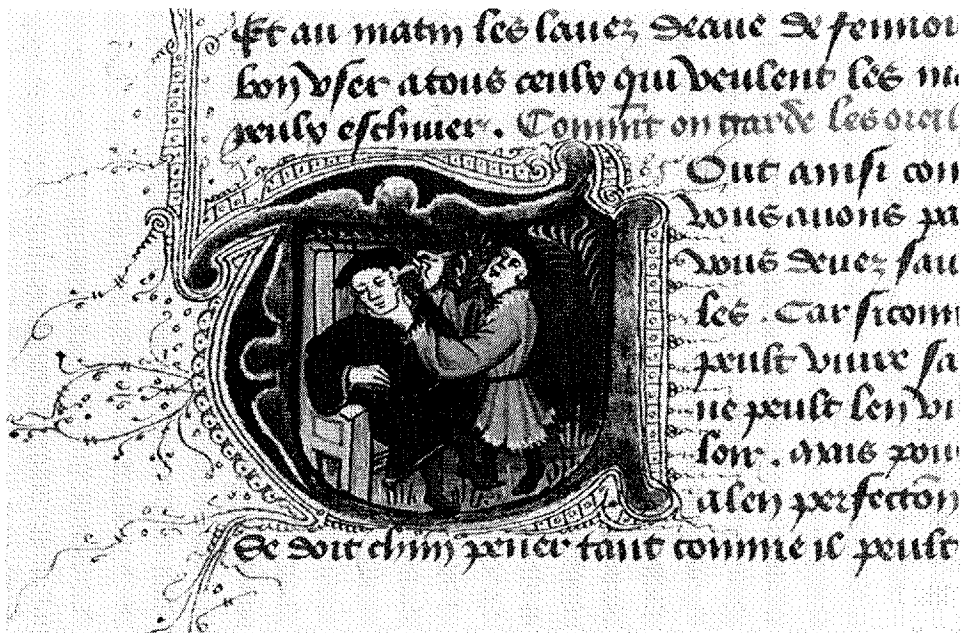 Et au matin les lauez deaue de fennou
bon vser a tous ceulx qui veulent les ma
yeulx eschiuer. Comment on garde les oreil
Out ainsi com
vous auons pa
vous deuez sau
les. Car sicomm
peult viure sa
ne peult len vi
loir. Mais pour
a len perfection
Se doit chun pener tant comme il peult